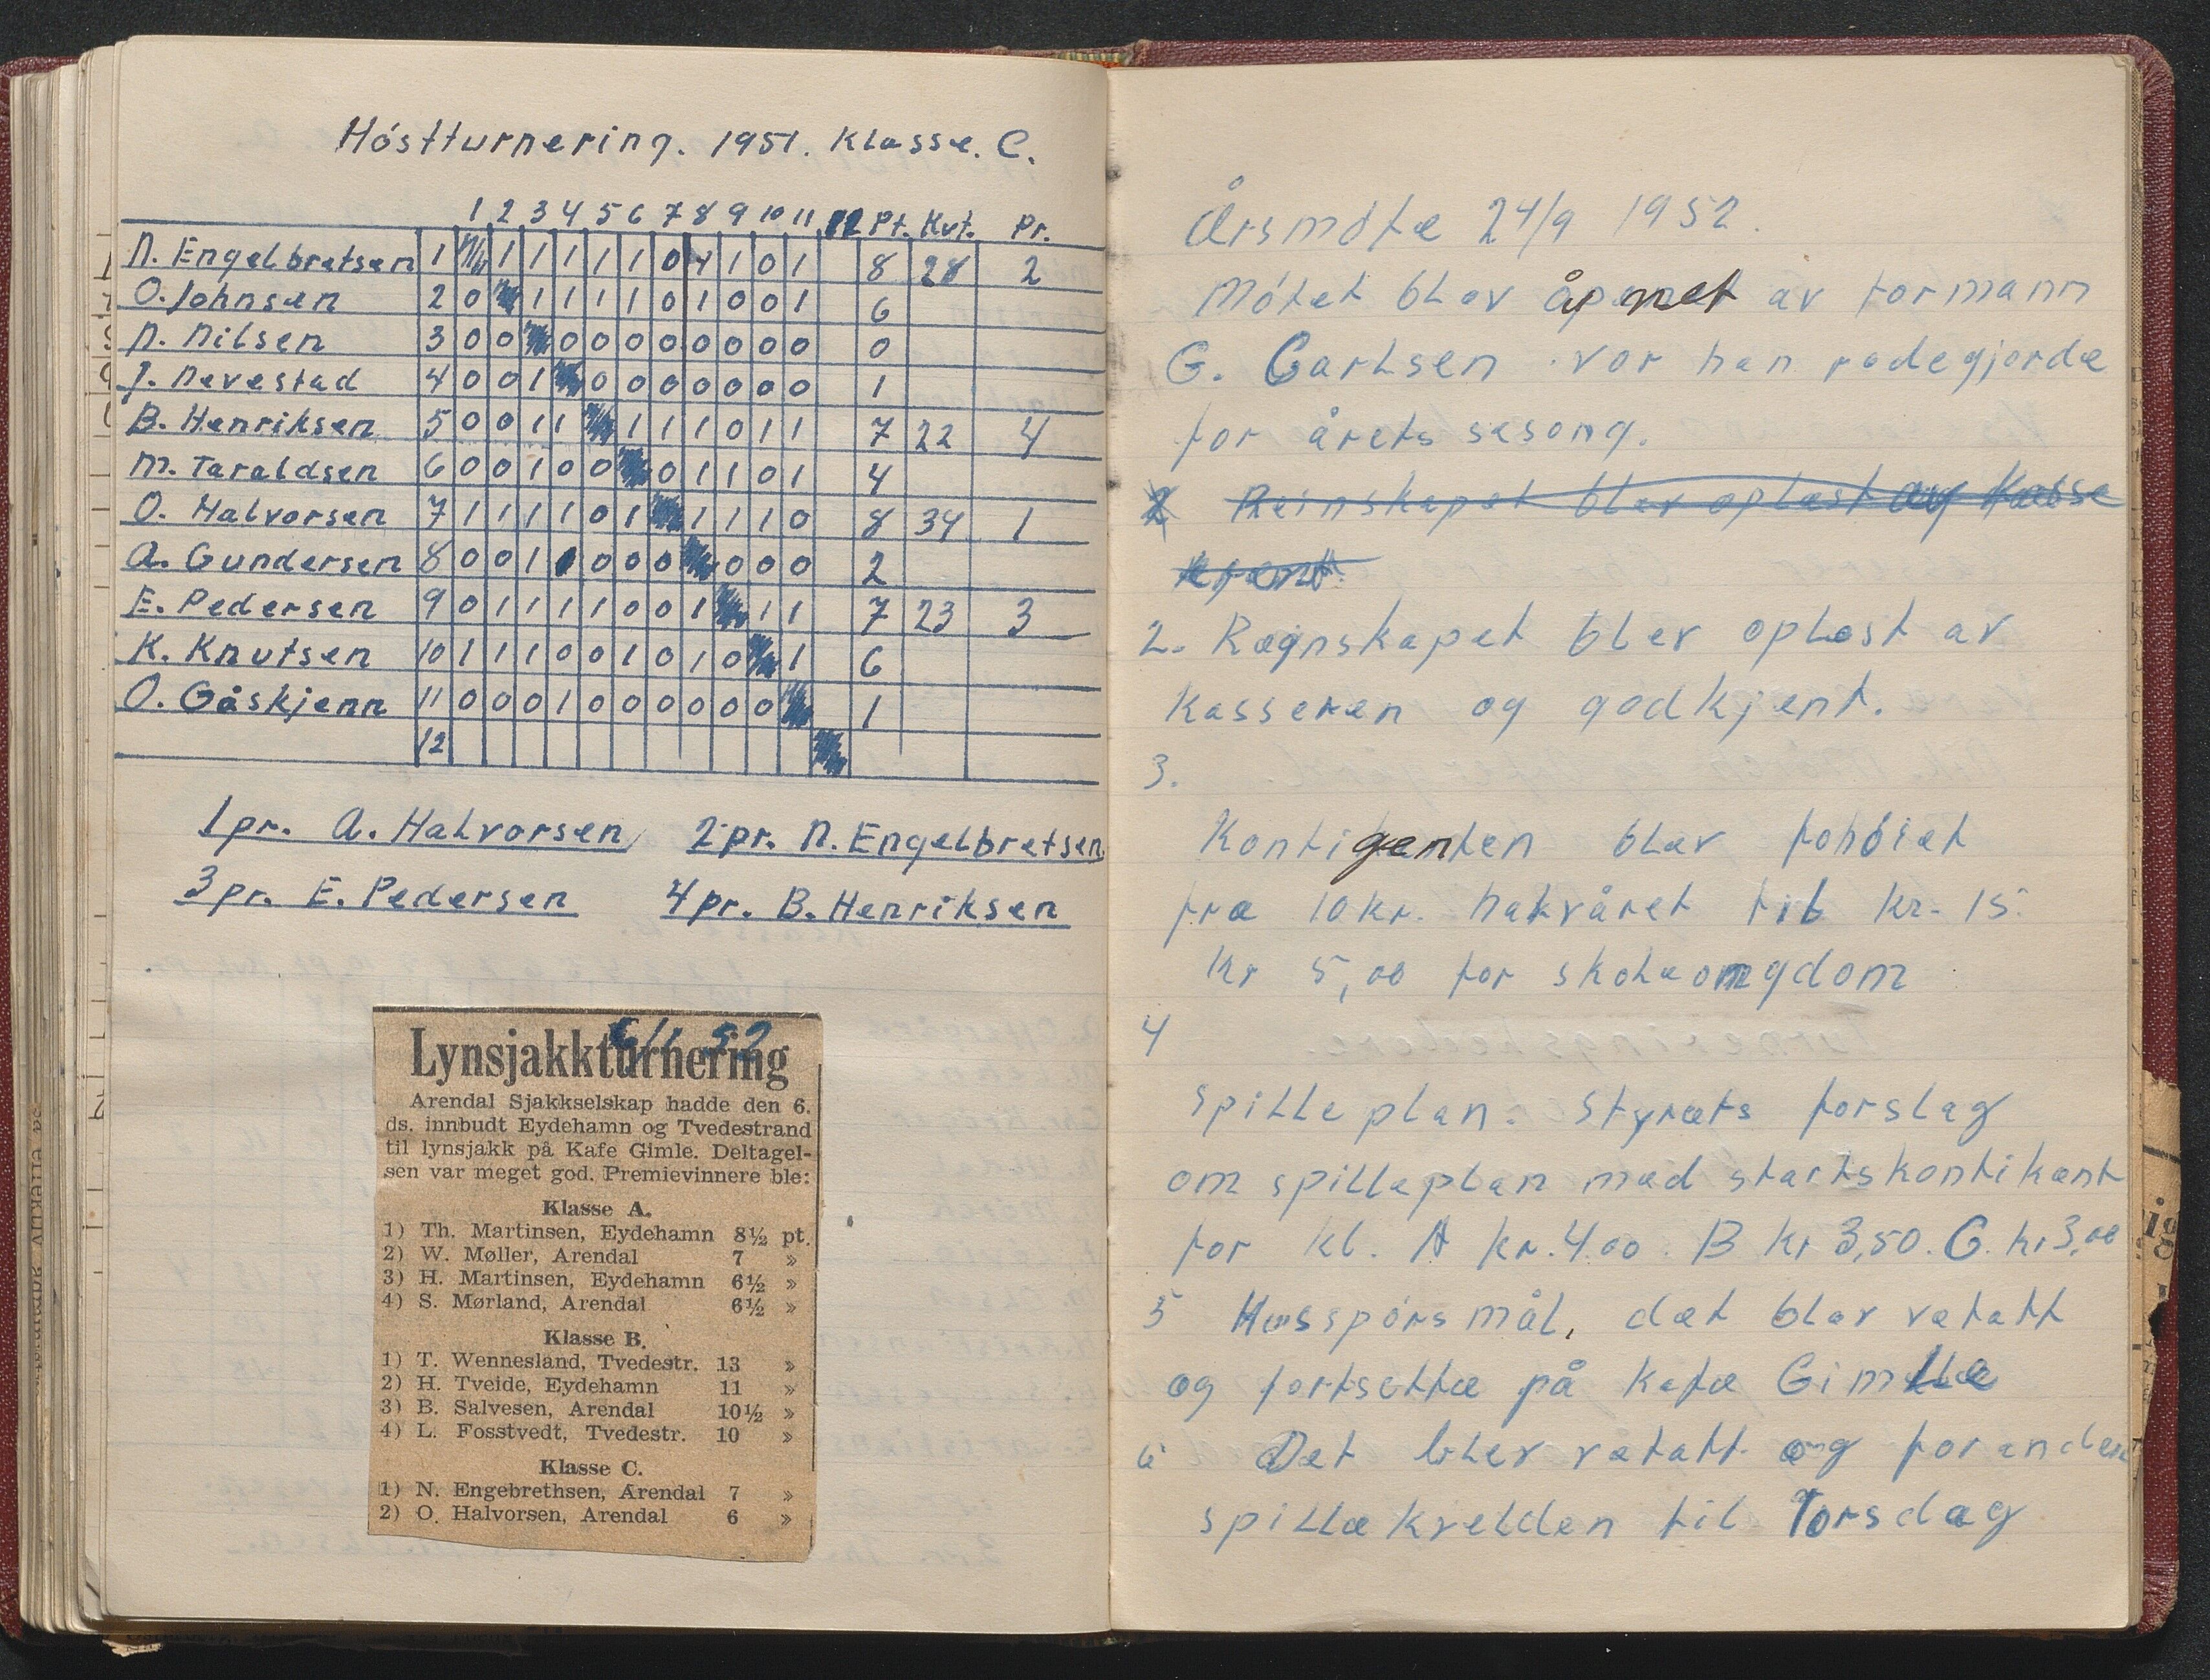 Høstturnering. 1951. Klasse. C.
1 2 3 4 5 6 7 8 9 10 11 12 Pt. Kvt. Pr.
N. Engelbretsen 1 1 1 1 1 1 0 1 1 0 1 8 28 2
O. Johnsen 2 0 1 1 1 1 0 1 0 0 1 6
N. Nilsen 3 0 0 0 0 0 0 0 0 0 0 0
J. Nevestad 4 0 0 1 0 0 0 0 0 0 0 1
B. Henriksen 5 0 0 1 1 1 1 1 0 1 1 7 22 4
M. Taraldsen 6 0 0 1 0 0 0 1 1 0 1 4
O. Halvorsen 7 1 1 1 1 0 1 1 1 1 0 8 34 1
A. Gundersen 8 0 0 1 0 0 0 0 0 0 2
E. Pedersen 9 0 1 1 1 1 0 0 1 1 1 7 23 3
K. Knutsen 10 1 1 1 0 0 1 0 1 0 1 6
O. Gåskjenn 11 0 0 0 1 0 0 0 0 0 0 1
12
1 pr. A. Halvorsen 2 pr. N. Engelbretsen
3 pr. E. Pedersen 4 pr. B. Henriksen
6/1 52
Lynsjakkturnering
Arendal Sjakkselskap hadde den 6.
ds. innbudt Eydehamn og Tvedestrand
til lynsjakk på Kafe Gimle. Deltagel-
sen var meget god. Premievinnere ble:
Klasse A.
1) Th. Martinsen, Eydehamn 8½ pt.
2) W. Møller, Arendal 7 »
3) H. Martinsen, Eydehamn 6½ »
4) S. Mørland, Arendal 6½ »
Klasse B.
1) T. Wennesland, Tvedestr. 13 »
2) H. Tveide, Eydehamn 11 »
3) B. Salvesen, Arendal 10½ »
4) L. Fosstvedt, Tvedestr. 10 »
Klasse C.
1) N. Engebrethsen, Arendal 7 »
2) O. Halvorsen, Arendal 6 »
Årsmøte 24/9 1952.
Møtet blev åpnet av formann
G. Carlsen. vor han redegjorde
for årets sesong.
2 Reinskapet blev oplest av Kasse
2. Regnskapet blev oplest av
Kasseren og godkjent.
3.
Kontigenten blev fohøiet
fra 10 kr. halvåret til kr. 15.
Kr 5,00 for skoleomgdom
4
Spilleplan. Styrets forslag
om spilleplan med startskontikent
for kl. A kr. 4.00. B kr 3,50. C. kr 3,00
5 Husspørsmål, det blev vetatt
og fortsette på kafe Gimlle
6 Det blev vetatt og forandere
spillekvelden til Torsdag